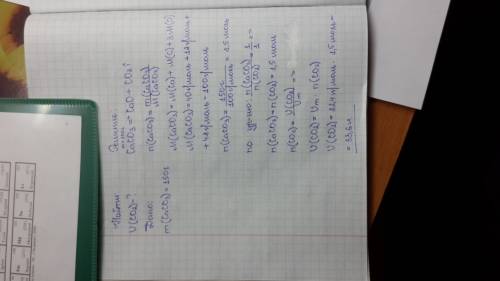 Найти:
V(CO₂)-?
Дано:
m(CaCO₃)=150г
CaCO₃ = CaO + CO₂↑
n(CaCO₃) = m(CaCO₃)/M(CaCO₃)
M(CaCO₃) = M(Ca) + M(C) + 3M(O)
M(CaCO₃) = 40г/моль + 12г/моль +
+ 48г/моль = 100г/моль
n(CaCO₃) = 150г/100г/моль = 1,5 моль
по ур-ию: n(CaCO₃)/n(CO₂) = 1/1 =>
n(CaCO₃) = n(CO₂) = 1,5 моль
n(CO₂) = V(CO₂)/Vm =>
V(CO₂) = Vm · n(CO₂)
V(CO₂) = 22,4л/моль · 1,5моль =
= 33,6л